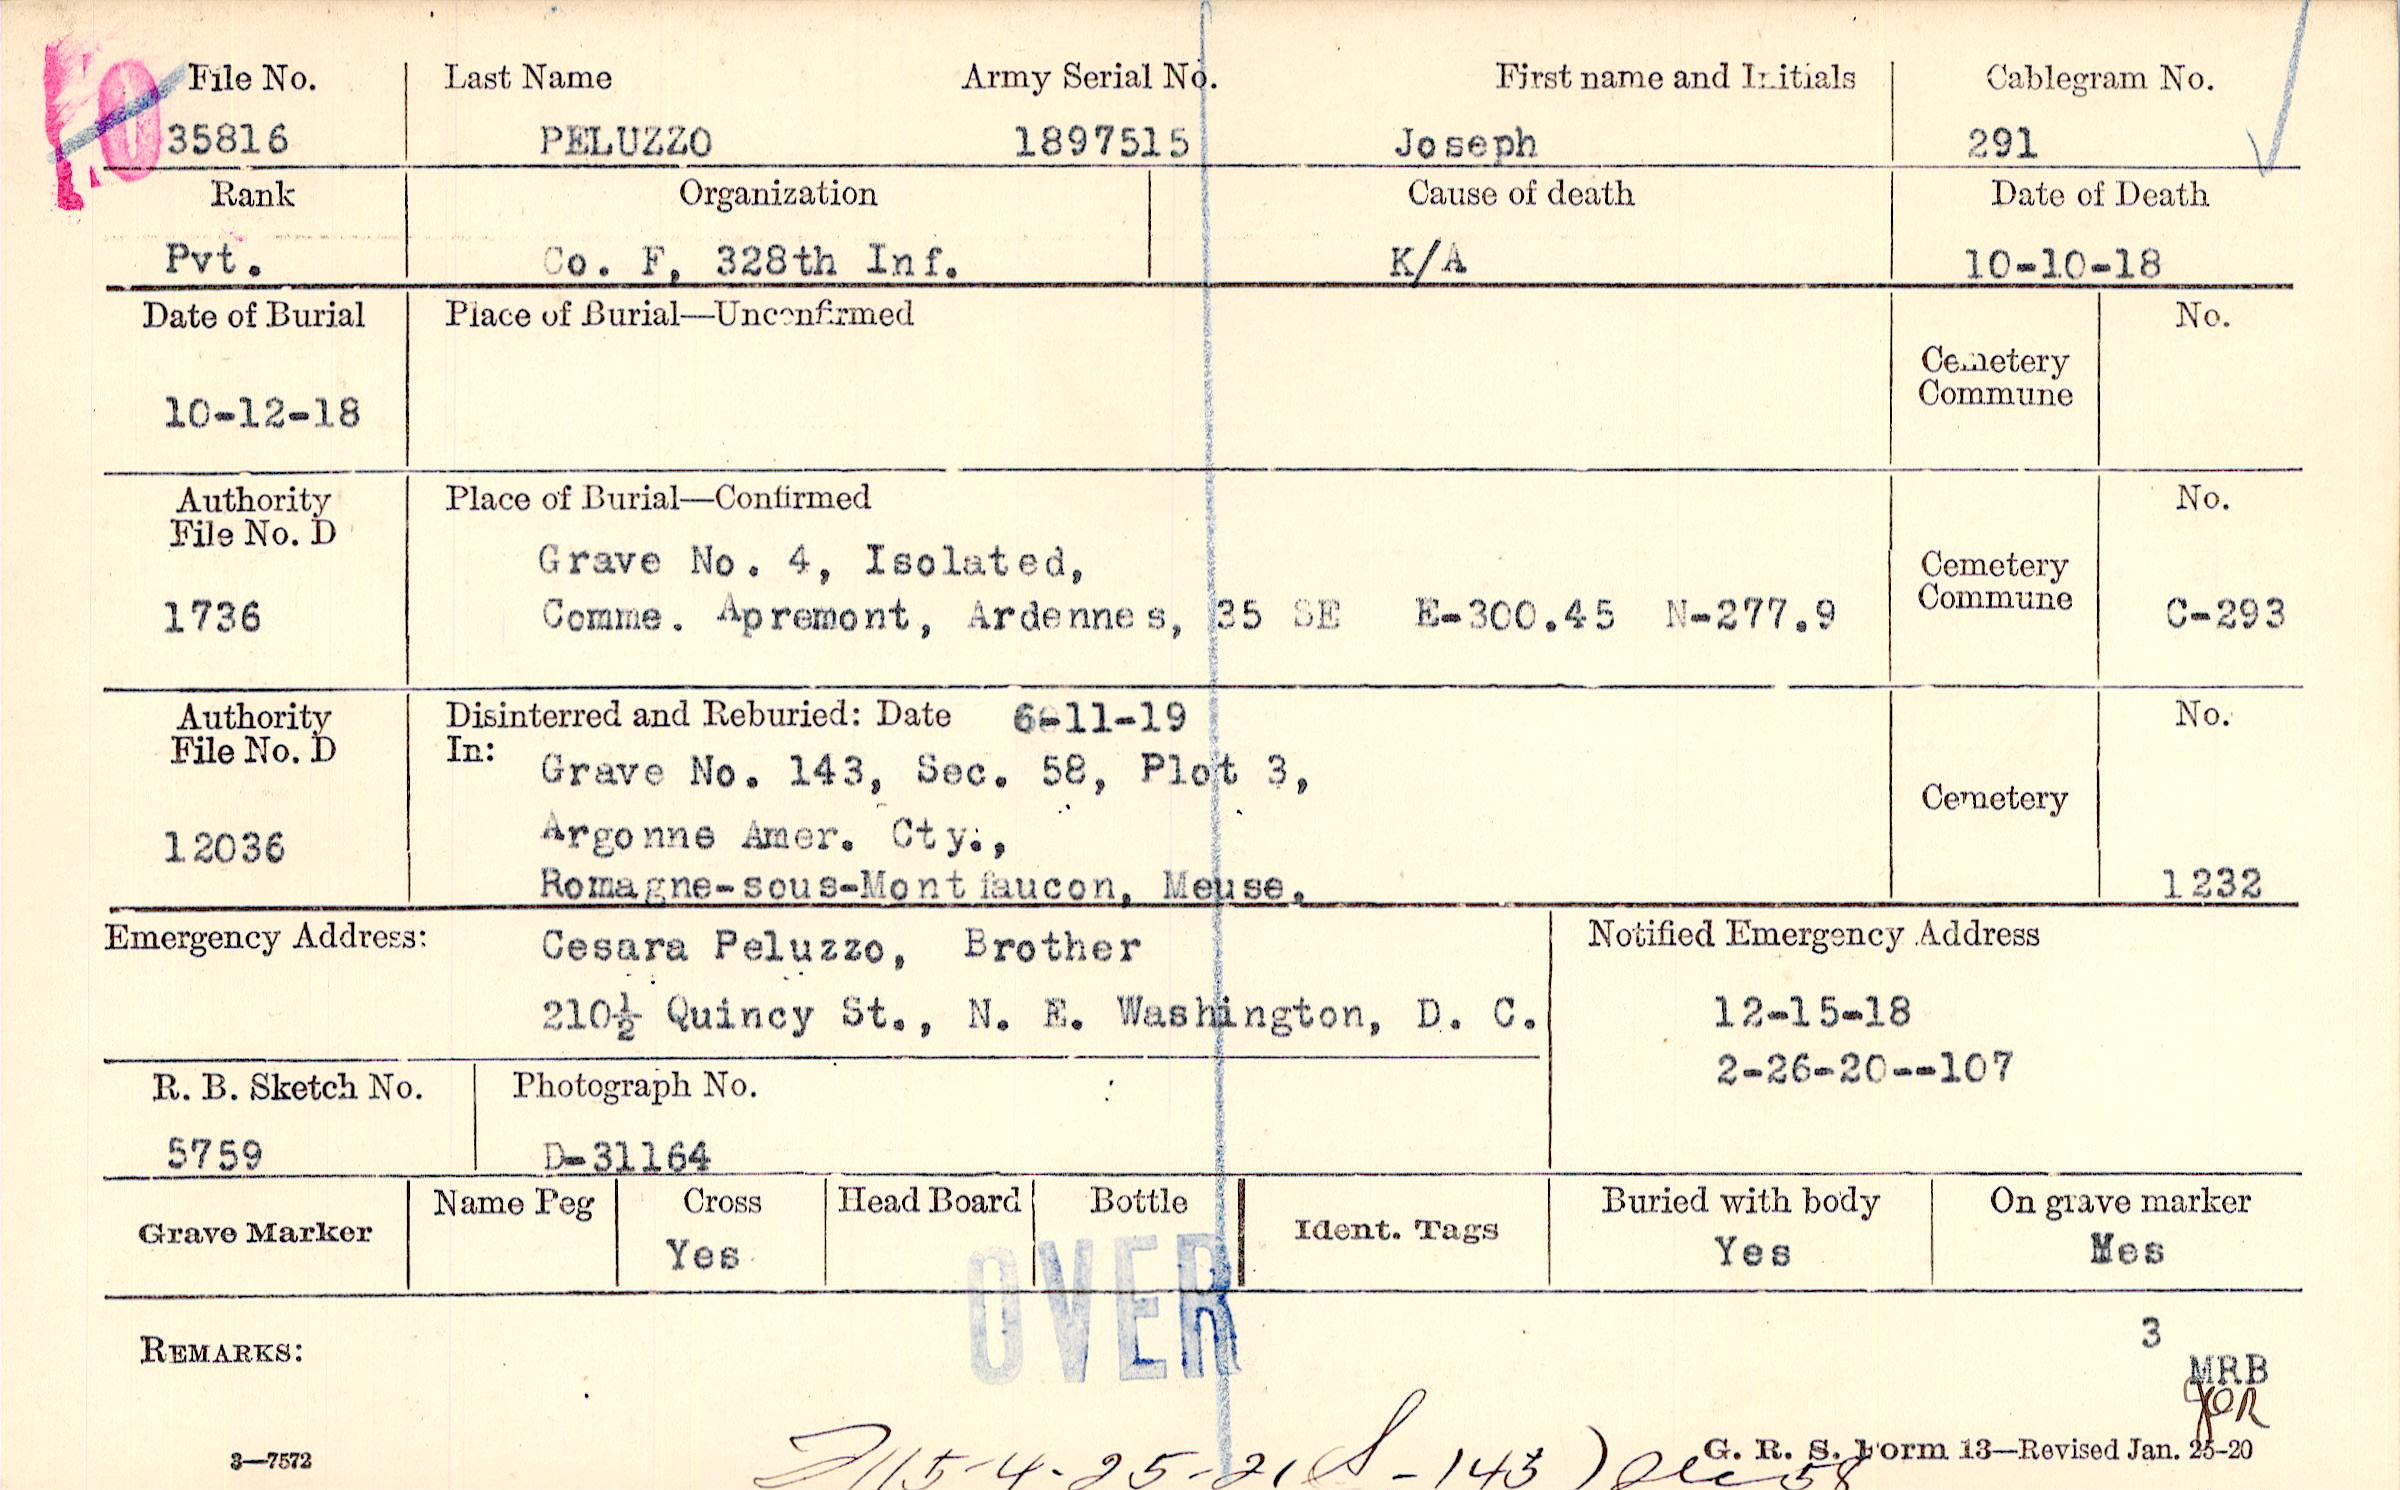 File No. Last Name Army Serial No. First name and Initials Cablegram No.
35816 PELUZZO 1897515 Joseph 291
Rank Organization Cause of death Date of Death
Pvt. Co. F, 328th Inf. K/A 10-10-18
Date of Burial Place of Burial—Unconfirmed No.
Cemetery
Commune
10-12-18
Authority Place of Burial—Confirmed No.
File No. D
Grave No. 4, Isolated, Cemetery
1736 Comme. Apremont, Ardennes, 35 SE E-300.45 N-277.9 Commune C-293
Authority Disinterred and Reburied: Date 6-11-19 No.
File No. D In:
Grave No. 143, Sec. 58, Plot 3,
Cemetery
12036 Argonne Amer. Cty.,
Romagne-sous-Montfaucon, Meuse. 1232
Emergency Address: Cesara Peluzzo, Brother Notified Emergency Address
210½ Quincy St., N. E. Washington, D. C. 12-15-18
2-26-20--107
R. B. Sketch No. Photograph No.
5759 D-31164
Grave Marker Name Peg Cross Head Board Bottle Ident. Tags Buried with body On grave marker
Yes Yes Yes
OVER
3
REMARKS:
MRB
3—7572 G. R. S. Form 13—Revised Jan. 25-20
4-25-21 - 143) 58